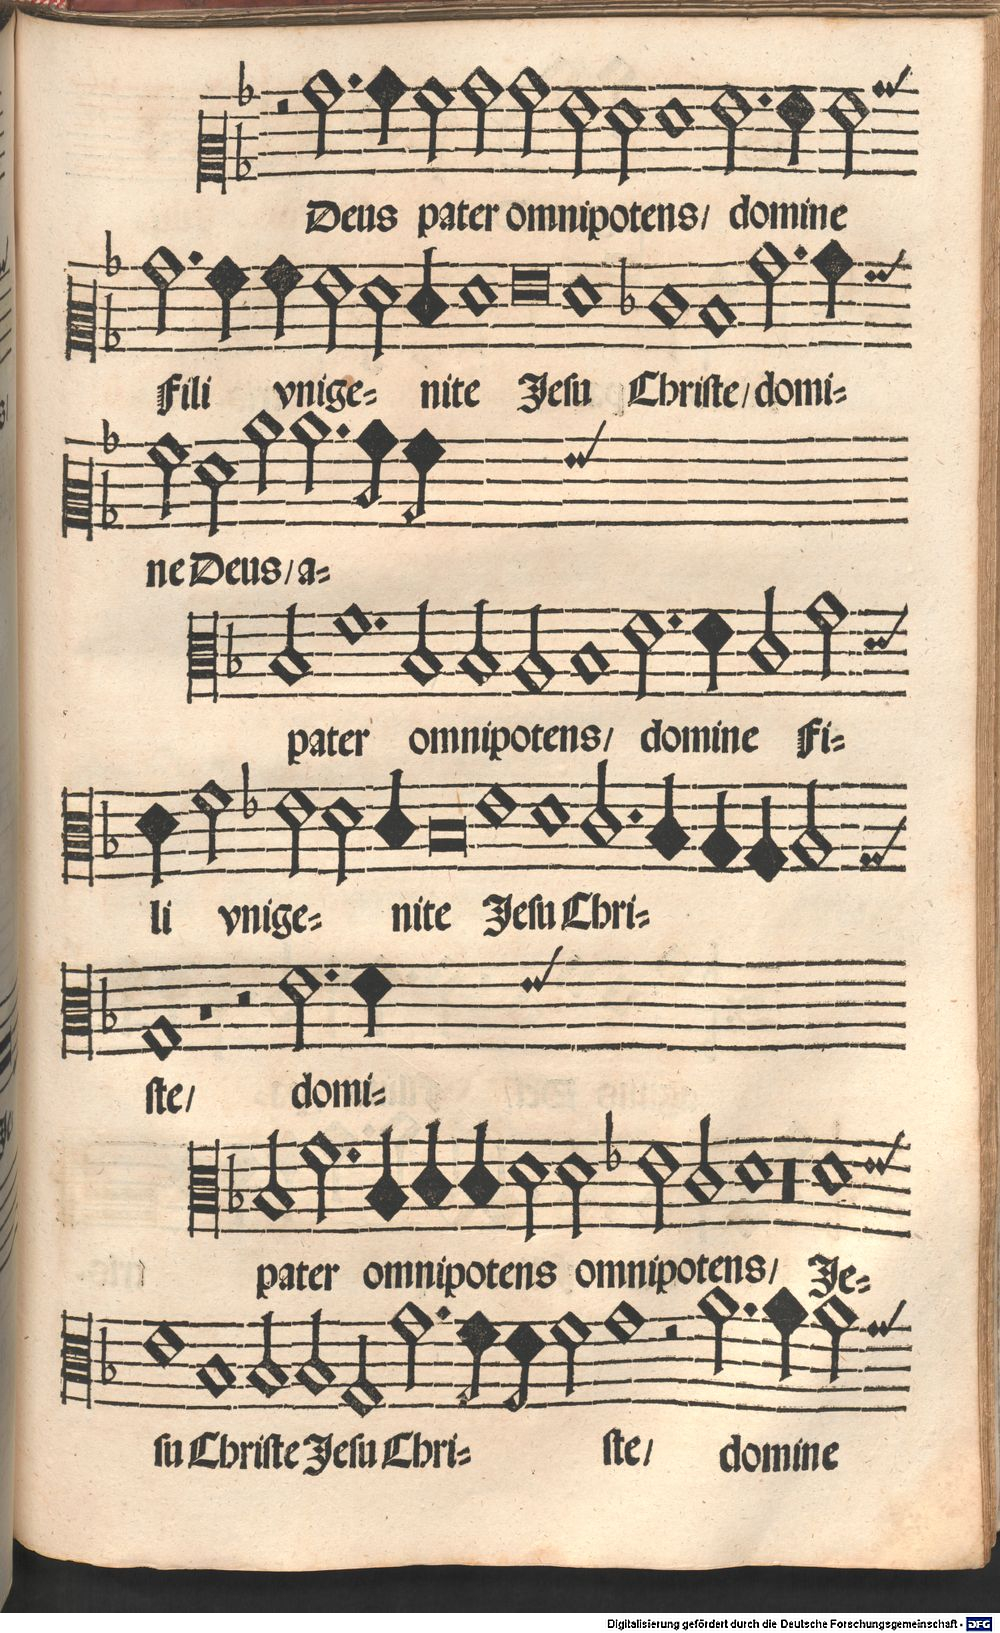 Deus pater omnipotens/ domine
Fili vnige= nite Jesu Christe/ domi=
ne Deus/ a=
pater omnipotens/ domine Fi=
li vnige= nite Jesu Chri=
ste/ domi=
pater omnipotens omnipotens/ Je=
su Christe Jesu Chri= ste/ domine
Digitalisierung gefördert durch die Deutsche Forschungsgemeinschaft - DFG